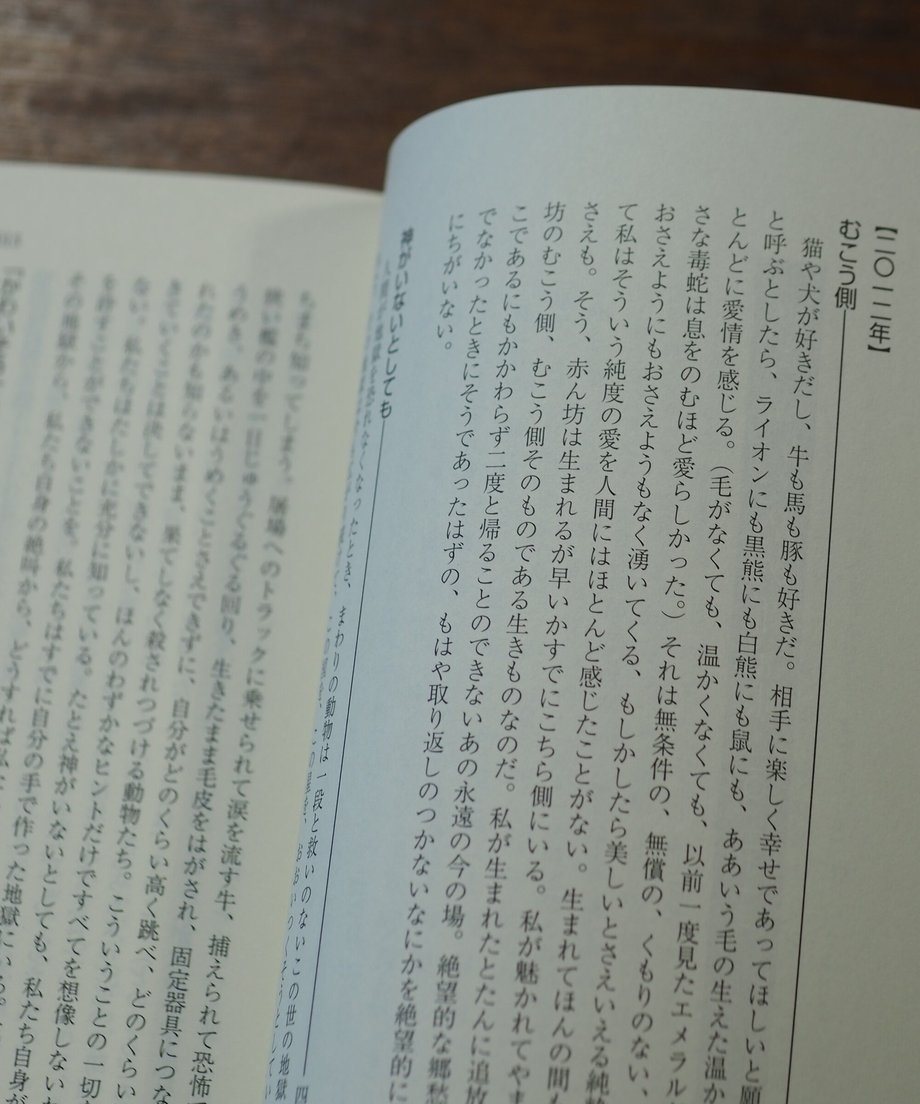 【二〇一二年】
むこう側
猫や犬が好きだし、牛も馬も豚も好きだ。相手に楽しく幸せであってほしいと願
と呼ぶとしたら、ライオンにも黒熊にも白熊にも鼠にも、ああいう毛の生えた温か
とんどに愛情を感じる。（毛がなくても、温かくなくても、以前一度見たエメラル
さな毒蛇は息をのむほど愛らしかった。）それは無条件の、無償の、くもりのない、
おさえようにもおさえようもなく湧いてくる、もしかしたら美しいとさえいえる純
て私はそういう純度の愛を人間にはほとんど感じたことがない。生まれてほんの間も
さえも。そう、赤ん坊は生まれるが早いかすでにこちら側にいる。私が魅かれてやま
坊のむこう側、むこう側そのものである生きものなのだ。私が生まれたとたんに追放
こであるにもかかわらず二度と帰ることのできないあの永遠の今の場。絶望的な郷愁
でなかったときにそうであったはずの、もはや取り返しのつかないなにかを絶望的に
にちがいない。
神がいないとしても
人間が地獄を恐れなくなったとき、まわりの動物は一段と救いのないこの世の地獄
ちまち知ってしまう。屠場へのトラックに乗せられて涙を流す牛、捕えられて恐怖
狭い檻の中を一日じゅうぐるぐる回り、生きたまま毛皮をはがされ、固定器具につな
うめき、あるいはうめくことさえできずに、自分がどのくらい高く跳べ、どのくらい
れたのかも知らないまま、果てしなく殺されつづける動物たち。こういうことの一切
きていくことは決してできないし、ほんのわずかなヒントだけですべてを想像しないわ
ない。私たちはたしかに充分に知っている。たとえ神がいないとしても、私たち自身が
を許すことができないことを。私たちはすでに自分の手で作った地獄にいる。
その地獄から、私たち自身の絶叫から、どうすれば私た
「かわいそう